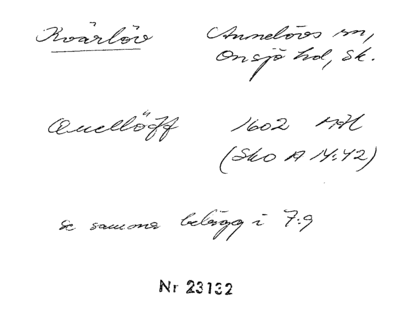 Kvärlöv Annelövs sn,
Onsjö hd, Sk.
Quellöff 1602
(Sko A IV:42)
se samma belägg i 7:9
Nr 23132